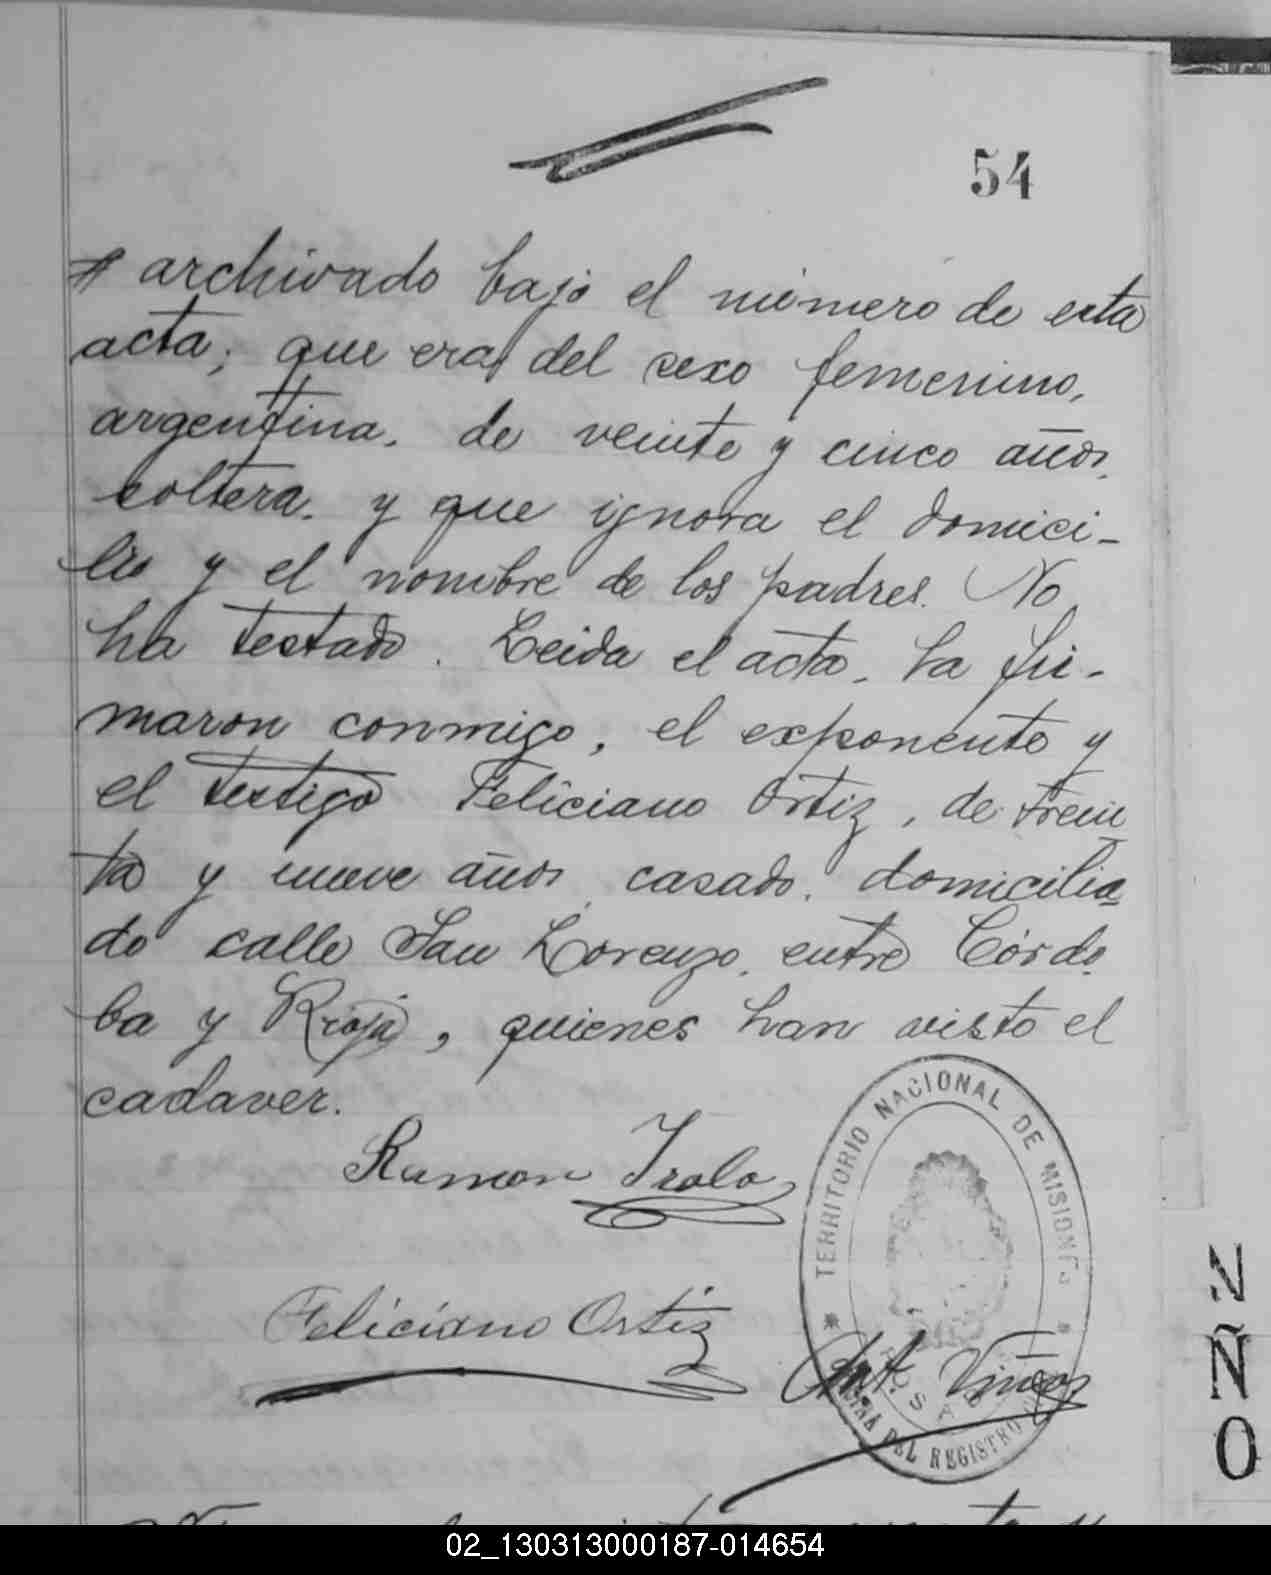 54
archivado bajo el número de esta
acta; que era del sexo femenino,
argentina, de veinte y cinco años,
soltera, y que ignora el domici-
lio y el nombre de los padres. No
ha testado. Leida el acta, la fir-
maron conmigo, el exponente y
el testigo Feliciano Ortiz, de trein
ta y nueve años, casado, domicilia
do calle San Lorenzo, entre Córdo
ba y Rioja, quienes han visto el
cadaver.
Ramon Irala
TERRITORIO NACIONAL DE MISIONES
Feliciano Ortiz
Ant. Viñas
DEL REGISTRO
N
Ñ
O
02_130313000187-014654